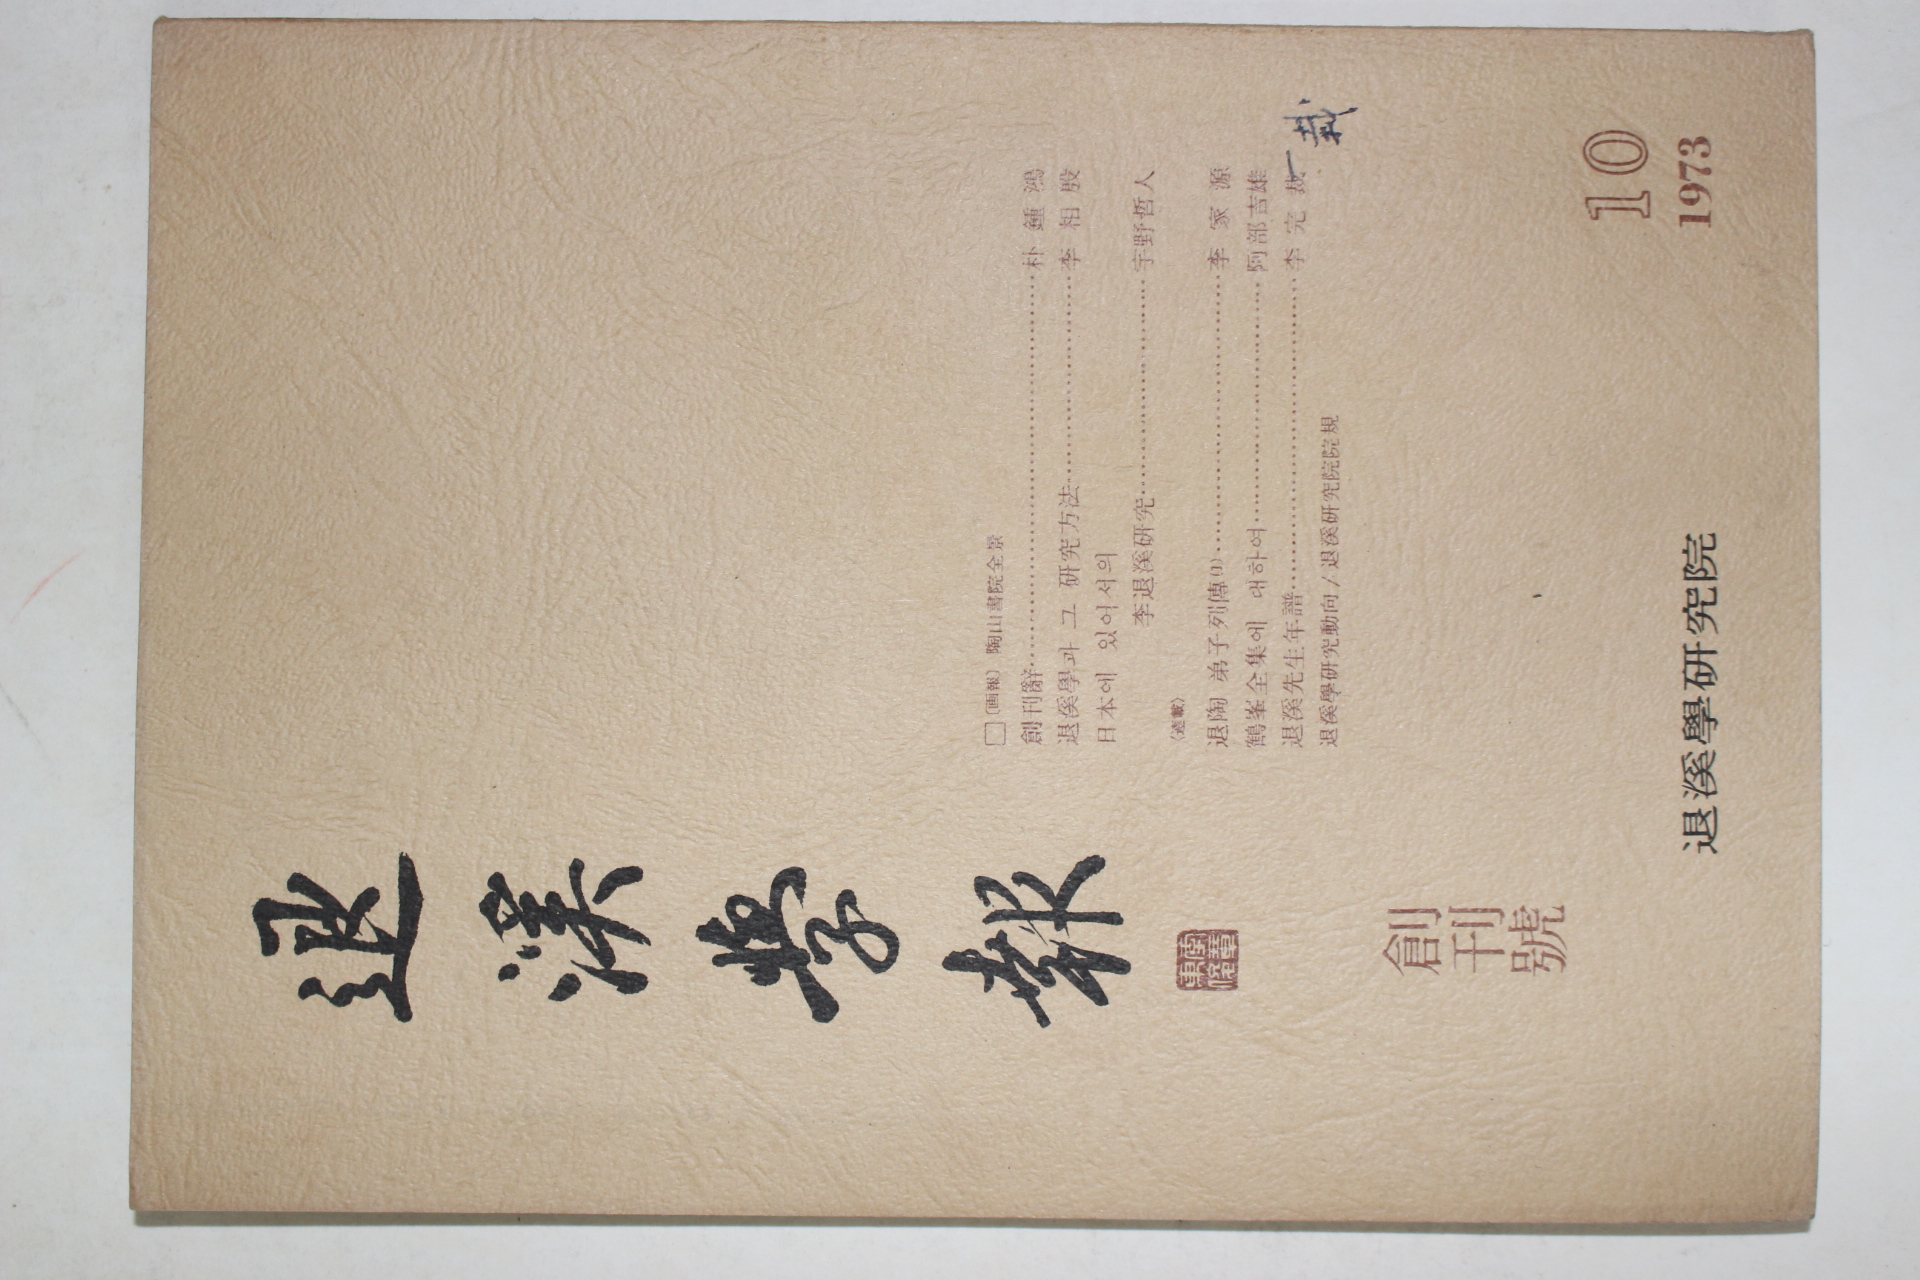 退溪學報
創刊號
□〔画報〕 陶山書院全景
創刊辭……朴鍾鴻
退溪學과 그 研究方法……李相殷
日本에 있어서의
李退溪研究……宇野哲人
〈連載〉
退陶 弟子列傳(1)……李家源
鶴峯全集에 대하여……阿部吉雄
退溪先生年譜……李完裁
栽
退溪學研究動向/退溪研究院院規
10
1973
退溪學研究院